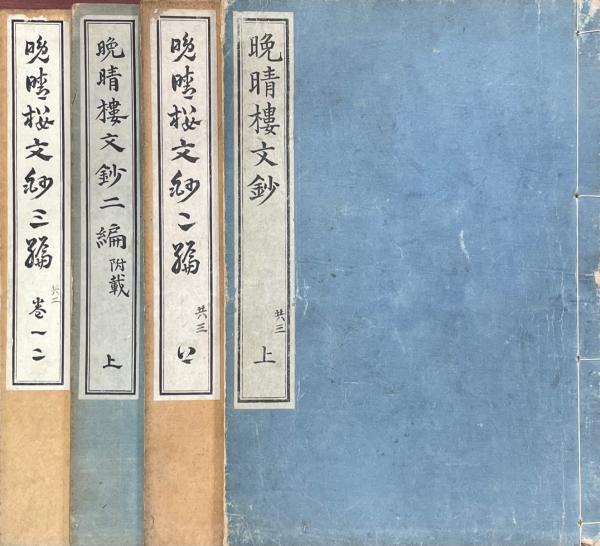 晩晴樓文鈔
共三
上
晩晴楼文鈔二編
共三
上
晩晴樓文鈔二編
附載
上
晩晴楼文鈔三編
共二
巻一二